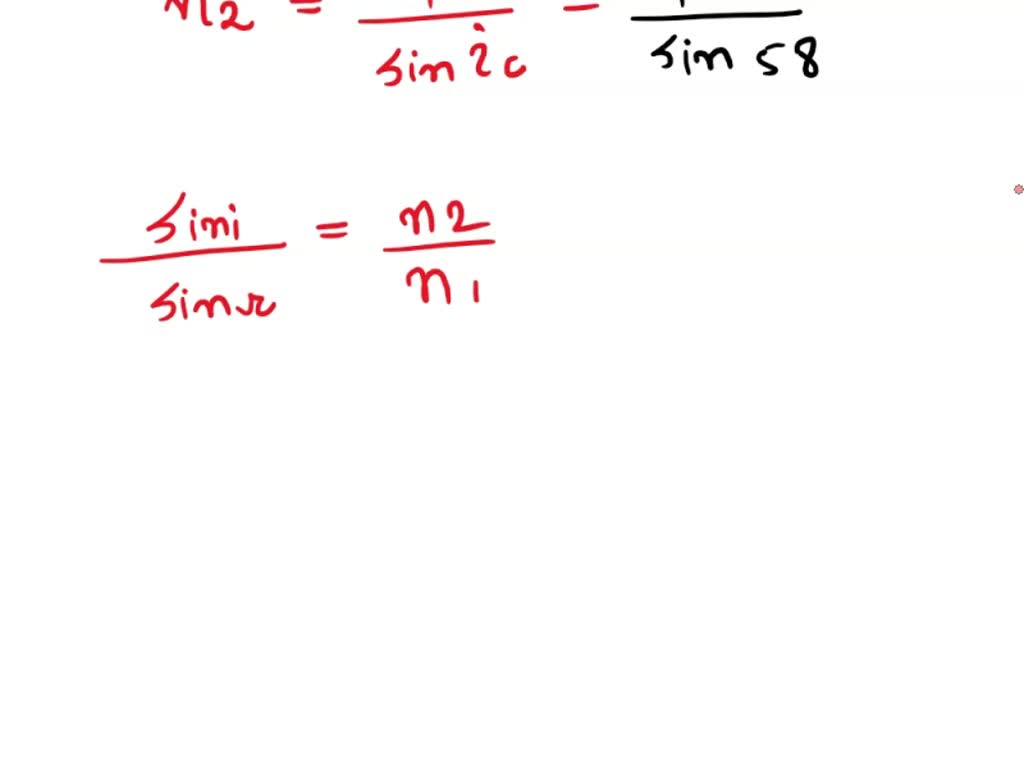 n2 = 1 / sin ic = 1 / sin 58
sini / sinr = n2 / n1